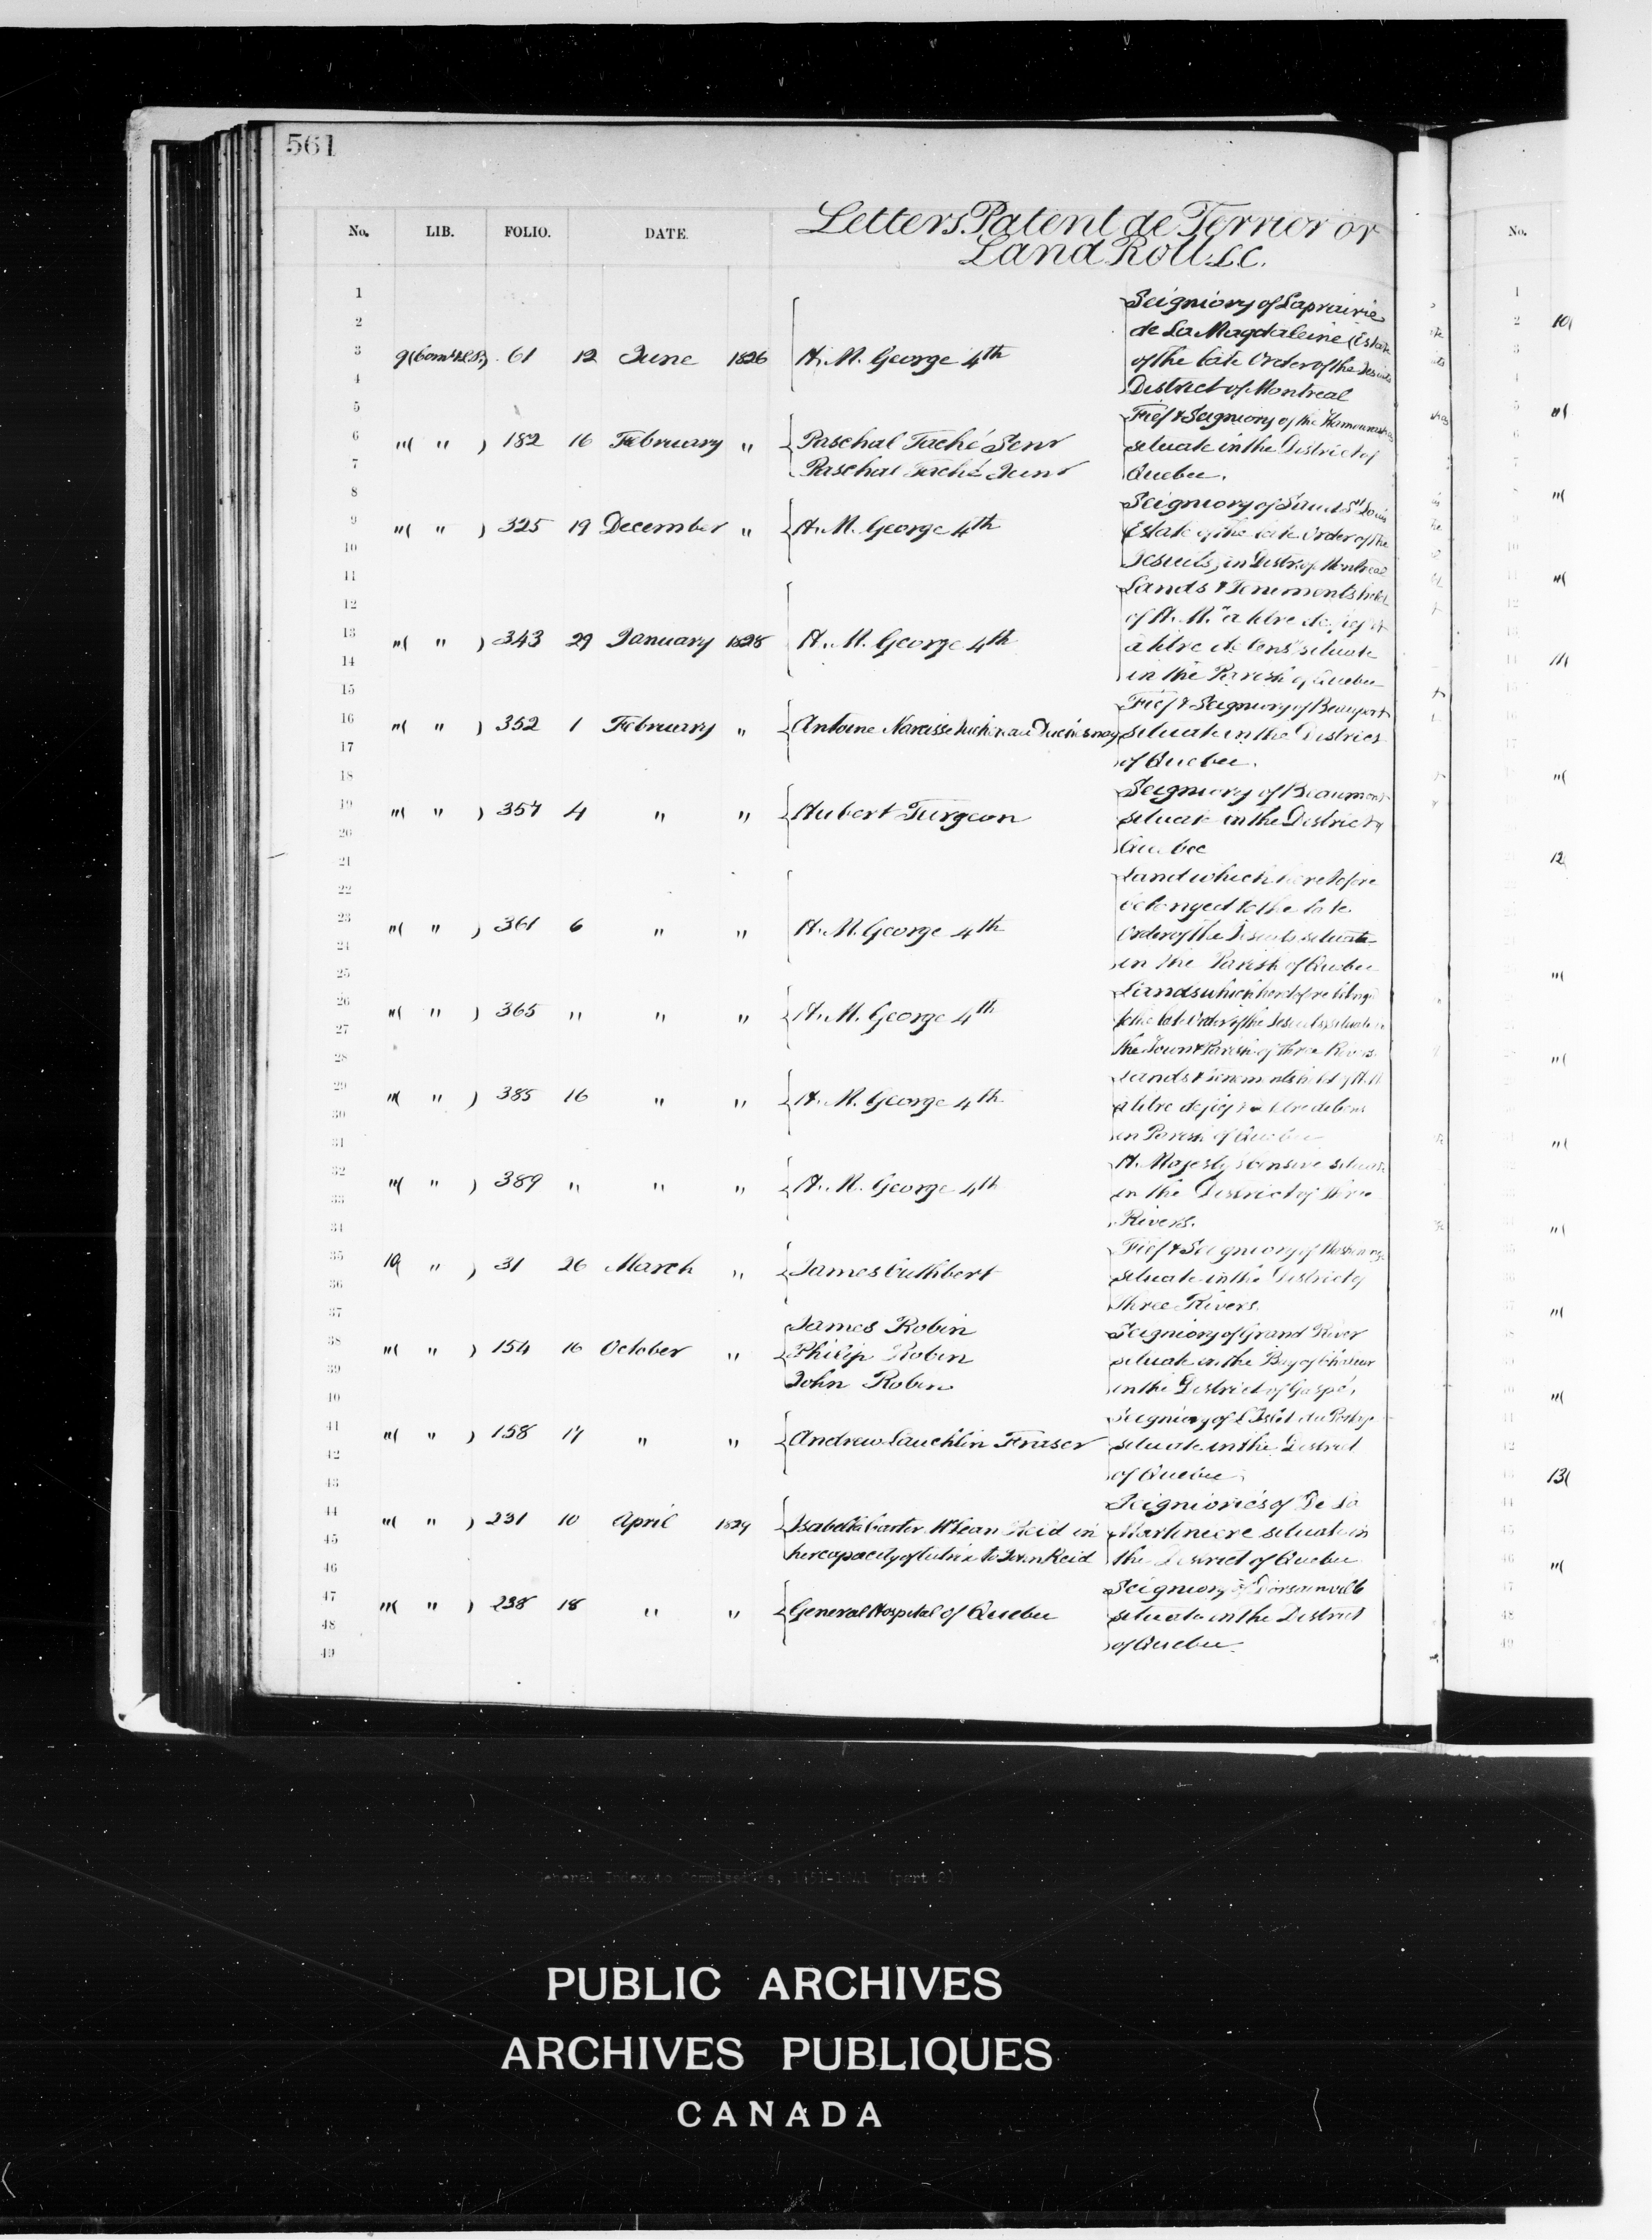 561
No. LIB. FOLIO. DATE. Letters Patent de Terrier or
Land Roll L.C.
Seigniory of Laprairie
de La Magdaleine (Estate
9 ( ) 61 12 June 1826 H. M. George 4th of the late Order of the Jesuits
District of Montreal
Fief & Seigniory of the Kamouraska
"( " ) 182 16 February " Paschal Taché Senr situate in the District of
Paschal Taché Junr Quebec.
Seigniory of Sault St Louis
"( " ) 325 19 December " H. M. George 4th Estate of the late Order of the
Jesuits, in Distr. of Montreal
Lands & Tenements held
of H. M. "a titre de fief &
"( " ) 343 29 January 1828 H. M. George 4th a titre de Cens" situate
in the Parish of Quebec
Fief & Seigniory of Beauport
"( " ) 352 1 February " Antoine Narcisse Juchereau Duchesnay situate in the District
of Quebec.
Seigniory of Beaumont
"( " ) 357 4 " " Hubert Turgeon situate in the District of
Quebec
Land which heretofore
belonged to the late
"( " ) 361 6 " " H. M. George 4th Order of the Jesuits situate
in the Parish of Quebec
Lands which heretofore belong'd
"( " ) 365 " " " H. M. George 4th to the late Order of the Jesuits situate in
the Town & Parish of Three Rivers
Lands & Tenements held of H. M.
"( " ) 385 16 " " H. M. George 4th a titre de fief & a titre de Cens
in Parish of Quebec
H. Majesty's Censive situate
"( " ) 389 " " " H. M. George 4th in the District of Three
Rivers.
Fief & Seigniory of
10( " ) 31 26 March " James Cuthbert situate in the District of
Three Rivers.
James Robin Seigniory of Grand River
"( " ) 154 16 October " Philip Robin situate in the Bay of Chaleur
John Robin in the District of Gaspé.
Seigniory of L'Islet du Portage
"( " ) 158 17 " " Andrew Lauchlin Fraser situate in the District
of Quebec.
Seigniories of De La
"( " ) 231 10 April 1829 Isabella Carter McLean Reid in Martiniere situate in
her capacity of tutrix to John Reid the District of Quebec
Seigniory of D'orsainville
"( " ) 238 18 " " General Hospital of Quebec situate in the District
of Quebec.
1
2
3
4
5
6
7
8
9
10
11
12
13
14
15
16
17
18
19
20
21
22
23
24
25
26
27
28
29
30
31
32
33
34
35
36
37
38
39
40
41
42
43
44
45
46
47
48
49
No.
10(
"(
"(
"(
"(
"(
12
"(
"(
"(
"(
"(
"(
13(
"(
General Index to Commissions, (part 2)
PUBLIC ARCHIVES
ARCHIVES PUBLIQUES
CANADA